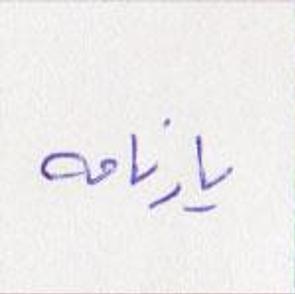 یارنامه